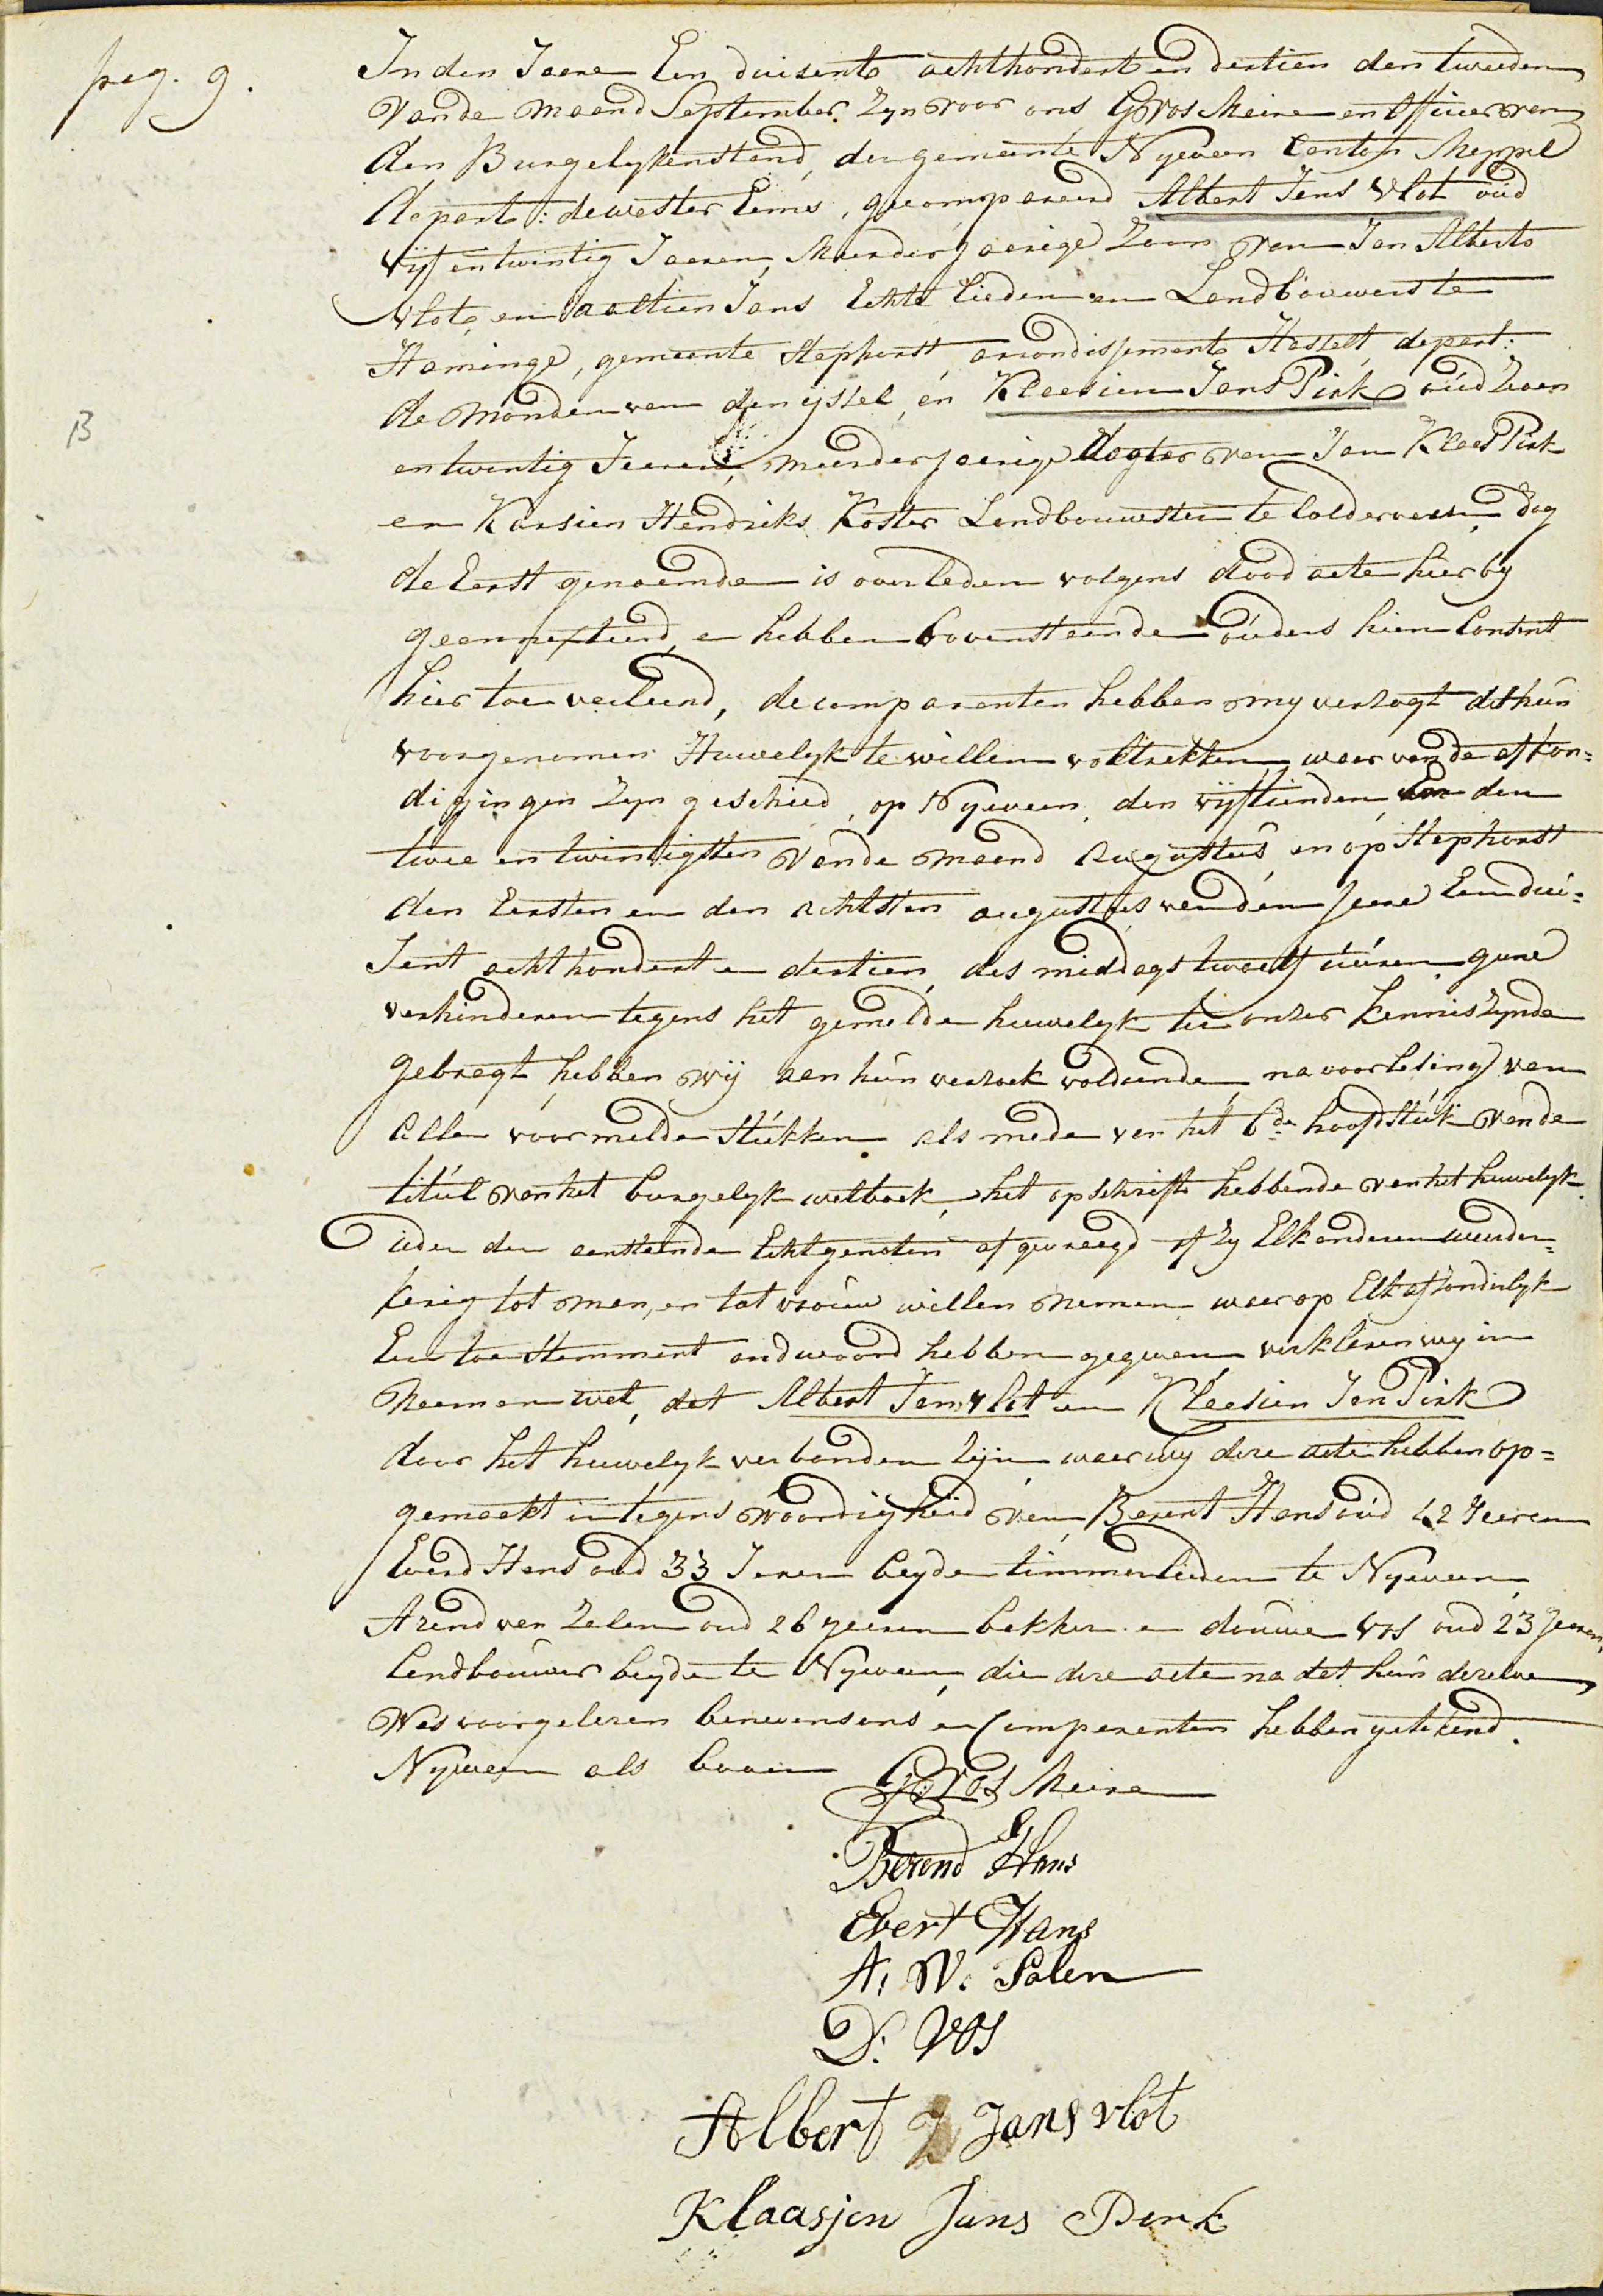 pag. 9.
In den Jaare Een duisent achthondert en dertien den tweeden
van de maand September Zyn voor ons G Vos Meire en Officier van
den Burgelyken stand, der gemeente Nyeveen Canton Meppel
depart: de wester Eems, gecompareerd Albert Jans Vlot oud
vijf en twintig Jaaren, Meerderjaarige Zoon van Jan Alberts
Vlot, en Aaltien Jans Echte lieden en Landbouwers te
Haminge, gemeente Staphorst, arrondissement Hasselt, depart:
de Monden van den ijssel, en Klaasien Jans Pirk oud
B
en twintig Jaaren, meerderjaarige dogter van Jan Klaas Pirk
en Karsien Hendriks Koster Landbouwersten te Colderveen, dog
de Eerst genoemde is overleden volgens dood acte hier by
geannexeerd, en hebben bovenstaande ouders hun Consent
hier toe verleend, de comparenten hebben my verzogt dat hun
voorgenomen Huwelyk te willen voltrekken, waar van de afkon=
digingen Zyn geschied, op Nyeveen, den vijftienden, en den
twee en twintigsten van de maand Augustus, en op Staphorst
den Eersten en den achtsten augustus van den Jaare Een dui=
sent achthondert en dertien, des middags twaalf uuren, gene
verhinderen tegens het gemelde huwelyk tie onzer kennis Zynde
gebragt, hebben wij aan hun verzoek voldoende, na voorlesing van
alle voormelde stukken als mede van het 6de hoofdstuk van de
titul van het burgelyk wetboek, het opschrift hebbende van het huwelyk.
ieder den aanstaande Echtgenoten afgevraagd of Zy Elkanderen weeder=
kerig tot man, en tot vrouw willen nemen waar op Elk afzonderlyk
Een toestemment andwoord hebben gegeven, verklaren wy in
Naam en wet, dat Albert Jans Vlot en Klaasien Jan Pirk
door het huwelyk verbonden Zijn, waar wy deze acte hebben op=
gemaakt in tegenswoordigheid van Berent Hans oud 42 Jaaren
Everd Hans oud 33 Jaren beyde timmerlieden te Nyeveen,
Arend van Zalen oud 26 jaaren bakker en douwe Vos oud 23 Jaaren,
landbouwer beyde te Nyeveen, die deze acte na dat hun dezelve
was voorgelezen benevens ons en Comparenten hebben getekend.
Nyeveen als boven G: Vos Meire
Berend Hans
Evert Hans
A. V. Salen
D. Vos
Albert Jans vlot
Klaasjen Jans Perk